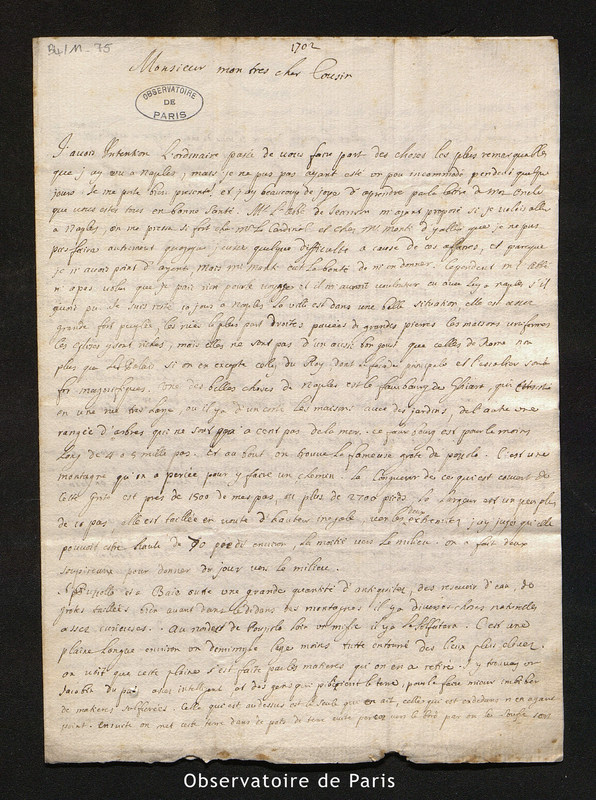 B4/M-75
1702
Monsieur mon tres cher Cousin
OBSERVATOIRE
DE
PARIS
J'avois Intention l'ordinaire passé de vous faire part des choses les plus remarquables
que j'ay vu a Naples, mais je ne pus pas ayant esté un peu incommodé pendant quelque
jours. Je me porte bien presentement et j'ay beaucoup de joye d'aprendre par la lettre de mon Oncle
que vous estes tous en bonne santé. Mr. l'Abbé de m'ayant proposé si je voulois aller
a Naples, on me pressa si fort chez Mr. le Cardinal et chez Mr. que je ne pus
pas faire autrement quoyque j'eusse quelque difficulté a cause de ces affaires, et parceque
je n'avois point d'argent, mais Mr. eut la bonté de m'en donner. Cependant Mr. l'Abbé
n'a pas voulu que je paie rien pour le voyage et il m'auroit
Je suis resté 10 jours a Naples la ville est dans une belle situation, elle est assez
grande fort peuplée, les rues la plus part droites pavées de grandes pierres les maisons uniformes
les Eglises y sont riches, mais elles ne sont pas d'un aussi bon gout que celles de Rome non
plus que les Palais si on en excepte celuy du Roy, dont la façade principale et l'escalier sont
fort magnifiques. Une des belles choses de Naples est le fauxbourg de Chiaia, qui
en une rue tres large, ou il y a d'un costé les maisons avec des jardins, de l'autre une
rangée d'arbres qui ne sont qu'a cent pas de la mer. Ce fauxbourg est pour le moins
long de 4 a 5 mille pas. Et au bout on trouve la fameuse grote de pozolo. C'est une
montagne qu'on a percée pour y faire un chemin. La longueur de ce qui est couvert de
cette grote est pres de 1500 de mes pas, ou plus de 2700 pieds, la largeur est un peu plus
de 10 pas elle est taillée en voute d'hauteur inegale, vers les deux extremitez j'ay jugé qu'elle
pouvoit estre haute de 70 pieds environ, la moitié vers le milieu. on a fait deux
soupiraux pour donner du jour vers le milieu.
A Pouzolo et a Baie outre une grande quantité d'antiquitez, des reservoirs d'eau, de
grotes taillées bien avant dans le dedans des montagnes il y a diverses choses naturelles
assez curieuses. Au nordest de Pouzolo loin un mille il y a la Solfatara. C'est une
plaine longue environ un demi mille large moins toute entourée des lieux plus elevez.
on voit que cette plaine s'est faite par les matieres qui on en a retiré. J'y trouvay un
assez intelligent et des gens qui la terre, pour la faire mieux imbiber
de matieres sulfurées. Celle qui est audessus est la seule qui en ait, celles qui est endedans n'en ayant
point. Ensuite on met cette terre dans de pots de terre cuite par ou le soufre sort
Observatoire de Paris